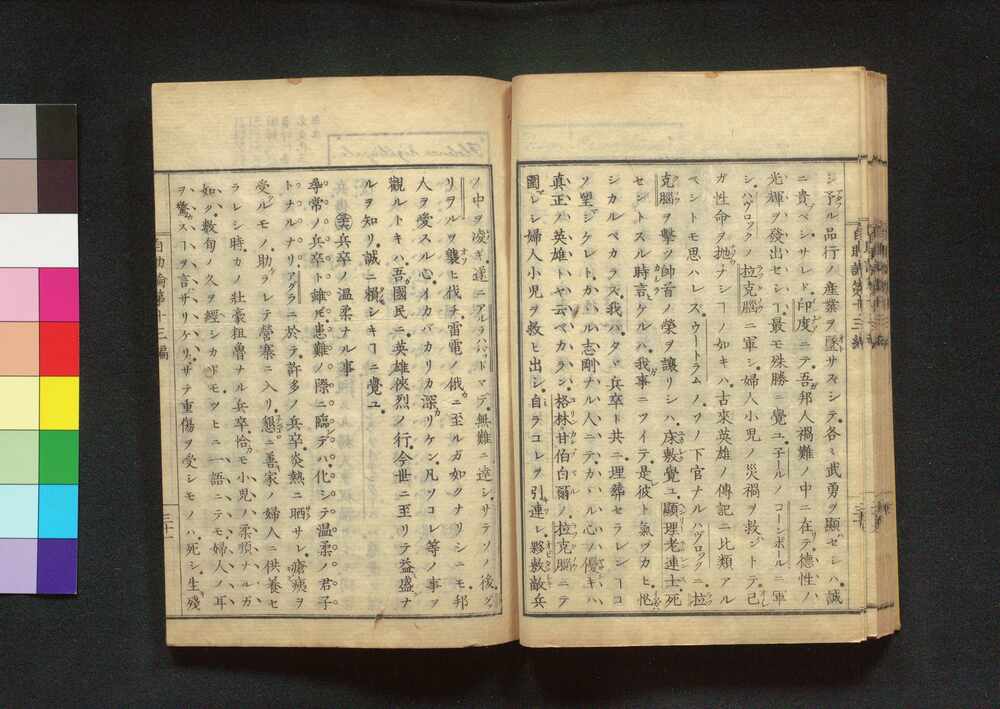 シ予タル品行ノ産業ヲ墜サズシテ、各々武勇ヲ顯ハセシハ誠
ニ貴ベシ、サレド印度ニテ、吾邦人禍難ノ中ニ在テ、德性ノ
光輝ヲ發出セシヿ、最モ殊勝ニ覺ユ、子ールノコーンポールニ軍
シ、ハヴロックノ拉克腦ニ軍シ、婦人小兒ノ災禍ヲ救ントテ、己
ガ性命ヲ抛ナシヿノ如キハ、古來英雄ノ傳記ニ比類アル
ベシトモ思ハレス、スウートラムノソノ下官ナルハヴロックニ、拉
克腦ヲ擊ツ帥首ノ榮ヲ讓リシハ、床敷覺ユ、顯理老連士、死
セントスル時言ケルハ、我事ニツイテ、是彼ト氣ヅカヒ、怪
シカルベカラズ、我ハタヾ兵卒ト共ニ埋葬セラレンヿコ
ソ望シケレト、カヽル志剛ナル人ニテ、カヽル心ノ優キハ、
真正ノ英雄トヤ云ベカラン、格林甘伯白爾ノ、拉克腦ニテ
圍レシ婦人小兒ヲ救ヒ出シ、自ラコレヲ引連レ、夥敷敵兵
ノ中ヲ凌ギ、遂ニアルラハバッドマデ、無難ニ達シ、サテソノ後、グ
リヲルヲ襲ヒ伐チ、雷電ノ俄ニ至ルガ如クナリシニモ、邦
人ヲ愛スル心、イカバカリカ深カリケン、凡ソコレ等ノ事ヲ
觀ルトキハ、吾國民ニ、英雄俠烈ノ行、今世ニ至リテ益盛ナ
ルヲ知リ、誠ニ賴シキヿニ覺ユ、
兵卒ノ溫柔ナル事
尋常ノ兵卒ト雖ドモ、患難ノ際ニ臨デハ、化シテ溫柔ノ君子
トナルナリ、アグラニ於テ、許多ノ兵卒、炎熱ニ晒サレ、瘡痍ヲ
受ルモノ、助ケラレテ營寨ニ入リ、懇ニ吾家ノ婦人ニ供養セ
ラレシ時、カノ壯豪粗魯ナル兵卒、恰モ小兒ノ柔順ナルガ
如ク、數旬ノ久ヲ經シカドモ、ツヒニ一語ニテモ、婦人ノ耳
ヲ驚スヿヲ言ザリケリ、サテ重傷ヲ受シモノハ死シ、生殘
自助論第十三編
三十一